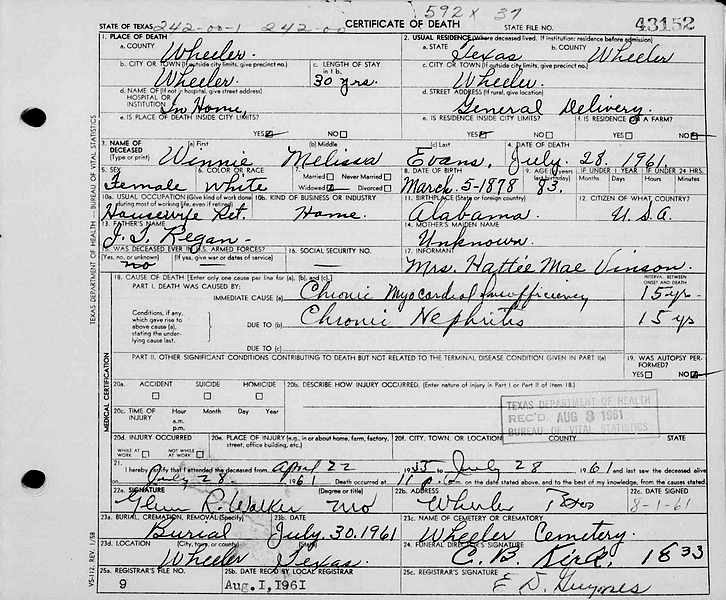 592 x 37
STATE OF TEXAS 242-00-1 242-00
CERTIFICATE OF DEATH
STATE FILE NO. 43152
1. PLACE OF DEATH
a. COUNTY
Wheeler
2. USUAL RESIDENCE (Where deceased lived. If institution: residence before admission)
a. STATE Texas b. COUNTY Wheeler
b. CITY OR TOWN (If outside city limits, give precinct no.)
Wheeler
c. LENGTH OF STAY in 1 b.
30 yrs.
c. CITY OR TOWN (If outside city limits, give precinct no.)
Wheeler
d. NAME OF (If not in hospital, give street address)
HOSPITAL OR
INSTITUTION In Home,
d. STREET ADDRESS (If rural, give location)
General Delivery.
e. IS PLACE OF DEATH INSIDE CITY LIMITS?
YES NO
e. IS RESIDENCE INSIDE CITY LIMITS?
YES NO
f. IS RESIDENCE ON A FARM?
YES NO
3. NAME OF DECEASED (Type or print)
(a) First (b) Middle (c) Last
Winnie Melissa Evans.
4. DATE OF DEATH
July. 28. 1961.
5. SEX
Female
6. COLOR OR RACE
White
7. Married Never Married
Widowed Divorced
8. DATE OF BIRTH
March. 5-1878
9. AGE (In years last birthday)
83.
IF UNDER 1 YEAR IF UNDER 24 HRS.
Months Days Hours Minutes
10a. USUAL OCCUPATION (Give kind of work done during most of working life, even if retired)
Housewife Ret.
10b. KIND OF BUSINESS OR INDUSTRY
Home.
11. BIRTHPLACE (State or foreign country)
Alabama.
12. CITIZEN OF WHAT COUNTRY?
U.S.A.
13. FATHER'S NAME
J. T. Regan-
14. MOTHER'S MAIDEN NAME
Unknown.
15. WAS DECEASED EVER IN U.S. ARMED FORCES?
(Yes, no, or unknown) (If yes, give war or dates of service)
no —
16. SOCIAL SECURITY NO.
—
17. INFORMANT
Mrs. Hattie Mae Vinson.
18. CAUSE OF DEATH [Enter only one cause per line for (a), (b), and (c).]
INTERVAL BETWEEN ONSET AND DEATH
PART I. DEATH WAS CAUSED BY:
IMMEDIATE CAUSE (a) Chronic Myocardial Insufficiency 15 yr
Conditions, if any, which gave rise to above cause (a), stating the underlying cause last.
DUE TO (b) Chronic Nephritis 15 ys
DUE TO (c)
PART II. OTHER SIGNIFICANT CONDITIONS CONTRIBUTING TO DEATH BUT NOT RELATED TO THE TERMINAL DISEASE CONDITION GIVEN IN PART I(a)
19. WAS AUTOPSY PERFORMED?
YES NO
20a. ACCIDENT SUICIDE HOMICIDE
20b. DESCRIBE HOW INJURY OCCURRED. (Enter nature of injury in Part I or Part II of item 18.)
20c. TIME OF INJURY
Hour Month Day Year
a.m.
p.m.
TEXAS DEPARTMENT OF HEALTH
REC'D AUG 3 1961
BUREAU OF VITAL STATISTICS
20d. INJURY OCCURRED
WHILE AT WORK NOT WHILE AT WORK
20e. PLACE OF INJURY (e.g., in or about home, farm, factory, street, office building, etc.)
20f. CITY, TOWN, OR LOCATION COUNTY STATE
21. I hereby certify that I attended the deceased from April 22 1955 to July 28 1961 and last saw the deceased alive
on July 28 1961 Death occurred at 11 p. m. on the date stated above, and to the best of my knowledge, from the causes stated.
22a. SIGNATURE (Degree or title)
Glenn R. Walker MD
22b. ADDRESS
Wheeler Texas
22c. DATE SIGNED
8-1-61
23a. BURIAL, CREMATION, REMOVAL (Specify)
Burial
23b. DATE
July. 30. 1961
23c. NAME OF CEMETERY OR CREMATORY
Wheeler Cemetery.
23d. LOCATION (City, town, or county) (State)
Wheeler Texas.
24. FUNERAL DIRECTOR'S SIGNATURE
C. B. Kirk. 1833
25a. REGISTRAR'S FILE NO.
9
25b. DATE REC'D BY LOCAL REGISTRAR
Aug. 1, 1961
25c. REGISTRAR'S SIGNATURE
TEXAS DEPARTMENT OF HEALTH — BUREAU OF VITAL STATISTICS
MEDICAL CERTIFICATION
VS-112, REV. 1/58